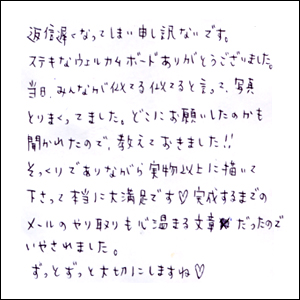 返信遅くなってしまい申し訳ないです。
ステキなウェルカムボードありがとうございました。
当日、みんなが似てる似てると言って、写真
とりまくってました。どこにお願いしたのかも
聞かれたので、教えておきました!!
そっくりでありながら実物以上に描いて
下さって本当に大満足です♡完成するまでの
メールのやり取りも心温まる文章だったので
いやされました。
ずっとずっと大切にしますね♡